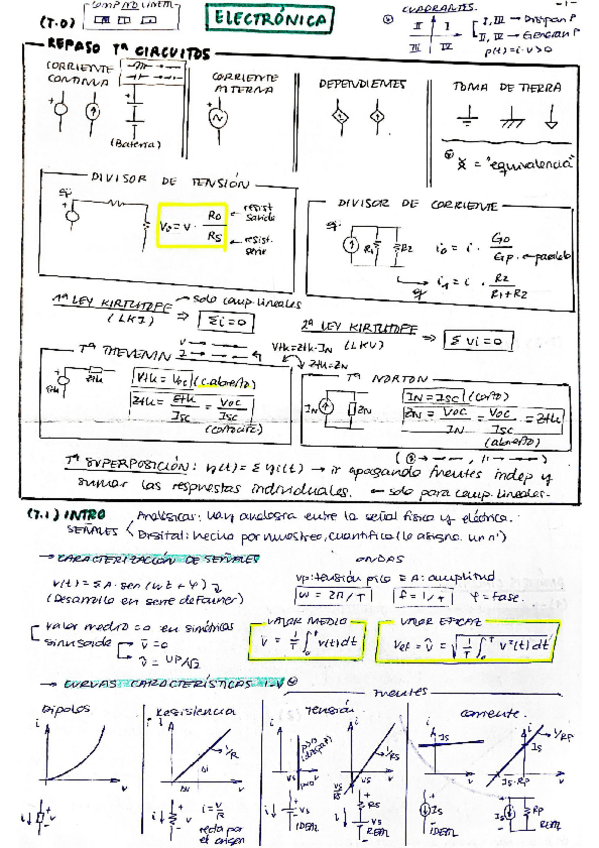 (T.0)
COMPAND LINEAL
ELECTRÓNICA
CUADRANTES.
-1-
I, III → Disipan P
II, IV → Generan P
p(t)=i·v>0
REPASO Tª CIRCUITOS
CORRIENTE CONTINUA
(Bateria)
CORRIENTE ALTERNA
DEPENDIENTES
TOMA DE TIERRA
= "equivalencia"
DIVISOR DE TENSIÓN
Ej:
Vo = V · Ro / Rs
← resist salida
← resist. serie
DIVISOR DE CORRIENTE
Ej:
R1 R2
io = i · Go / Gp ← paralelo
i1 = i · R2 / R1+R2
1ª LEY KIRTCHOFF → solo comp. lineales
(LKI) ⇒ Σi=0
2ª LEY KIRTCHOFF
(LKV) ⇒ Σvi=0
Vth=Zth·IN
Zth=ZN
Tª THEVENIN
Eth Zth
Vth = Voc (c.abierto)
Zth = Eth / Isc = Voc / Isc
(cortocirc)
Tª NORTON
IN ZN
IN = Isc (corto)
ZN = Voc / IN = Voc / Isc = Zth
(abierto)
Tª SUPERPOSICIÓN: η(t) = Σηi(t) → ir apagando fuentes indep y
sumar las respuestas individuales. ← solo para comp. lineales.
(T.1) INTRO
SEÑALES
Analógicas: hay analogía entre la señal física y eléctrica.
Digital: hecho por muestreo, cuantifica (le asigna un nº)
→ CARACTERIZACIÓN DE SEÑALES
ONDAS
v(t) = ΣA·sen(wt+φ)
(Desarrollo en serie de Fourier)
vp: tensión pico = A: amplitud
w = 2π/T f = 1/T φ = fase.
Valor medio = 0 en simétricas
sinusoide → v̄ = 0
→ v̂ = VP/√2
VALOR MEDIO
v̄ = 1/T ∫₀ᵀ v(t)dt
VALOR EFICAZ
Vef = v̂ = √(1/T ∫₀ᵀ v²(t)dt)
→ CURVAS CARACTERÍSTICAS I-V
fuentes
Dipolos
Resistencia
Tensión
Corriente.
i v
i 1/R Δi Δv v
i Vs v
i 1/Rs Vs v
i Is v
i Is 1/Rp Is·Rp v
i = v/R
recta por el origen
Vs IDEAL
Rs Vs REAL
Is IDEAL
Is Rp REAL